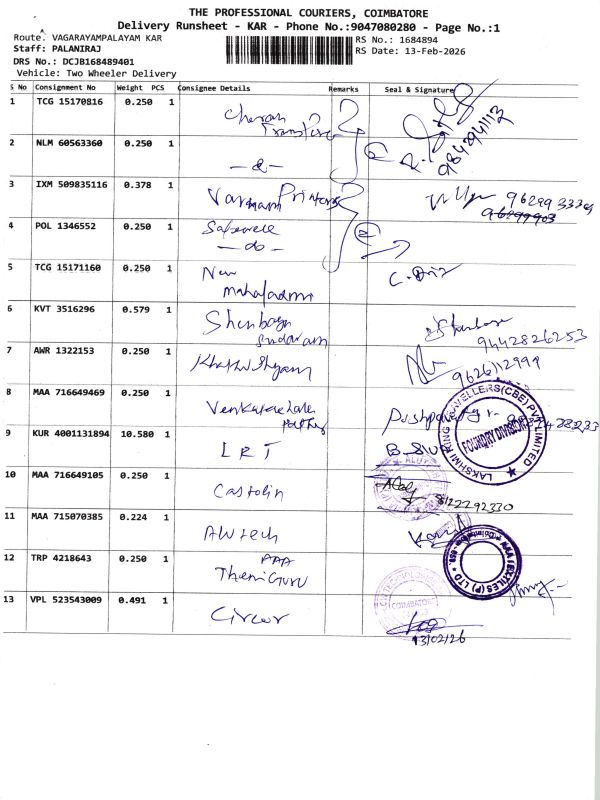 THE PROFESSIONAL COURIERS, COIMBATORE
Delivery Runsheet - KAR - Phone No.:9047080280 - Page No.:1
Route. VAGARAYAMPALAYAM KAR
RS No.: 1684894
Staff: PALANIRAJ
RS Date: 13-Feb-2026
DRS No.: DCJB168489401
Vehicle: Two Wheeler Delivery
S No Consignment No Weight PCS Consignee Details Remarks Seal & Signature
1 TCG 15170816 0.250 1 Cheran
9843941113
2 NLM 60563360 0.250 1 -do-
3 IXM 509835116 0.378 1 Varmam Printers
4 POL 1346552 0.250 1 Safewell
-do-
5 TCG 15171160 0.250 1 New
Mahalaxmi
6 KVT 3516296 0.579 1 Shenbaga
Sundaram
9442826253
7 AWR 1322153 0.250 1 Khathu Shyam
9626112999
8 MAA 716649469 0.250 1 Venkatachala
LAKSHMI RING TRAVELLERS(CBE) PVT LIMITED
FOUNDRY DIVISION
9 KUR 4001131894 10.580 1 LRT
10 MAA 716649105 0.250 1 Castolin
8122292330
11 MAA 715070385 0.224 1 AW tech
12 TRP 4218643 0.250 1 AAA
Theni Guru
AAA TEXTILES (P) LTD
13 VPL 523543009 0.491 1 Circor
COIMBATORE
13/02/26